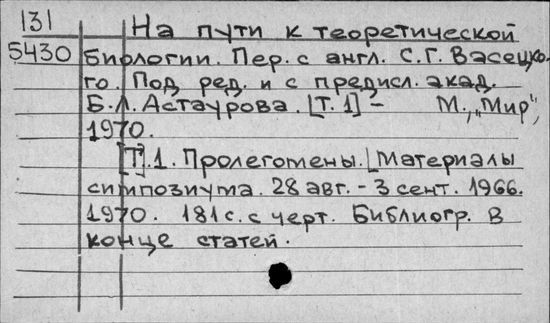 131 На пути к теоретической
5430 биологии. Пер. с англ. С.Г. Васецко-
го. Под ред. и с предисл. акад.
Б.Л. Астаурова. [Т. 1] - М., „Мир",
1970.
[Т]. 1. Пролегомены. [Материалы
симпозиума. 28 авг. - 3 сент. 1966.
1970. 181 с. с черт. Библиогр. в
конце статей.